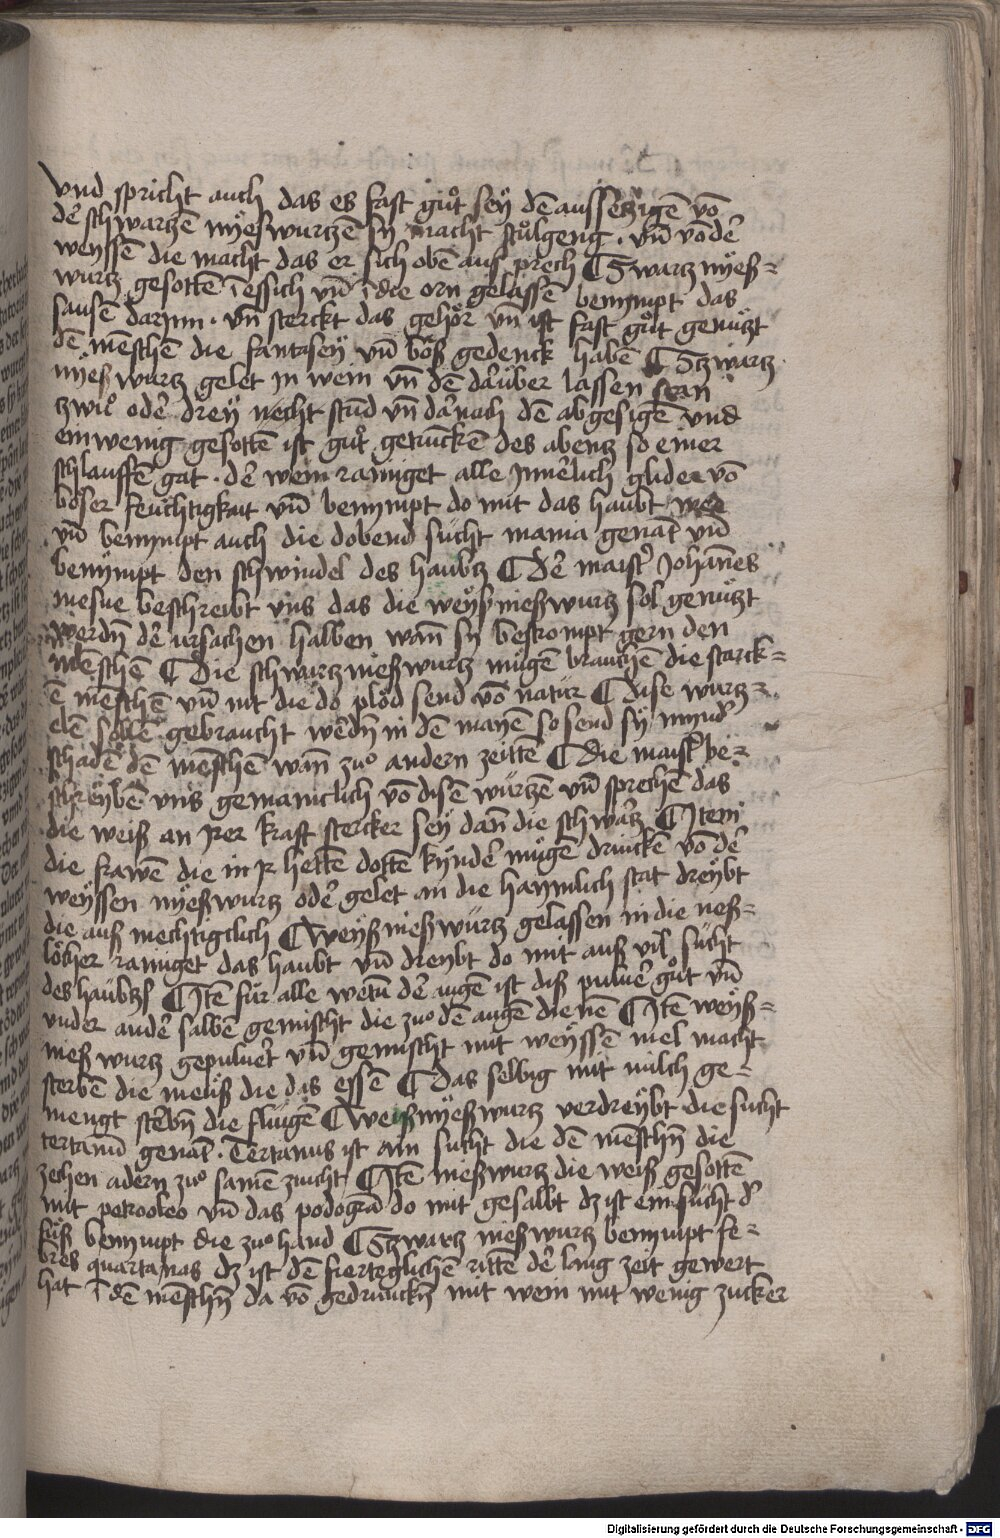 vnd spricht auch das es fast gůt sey dē aussetzigē võ
dē schwartzē nÿeswurtzē sy macht stůlgeng . vn̄ võ der
weyssē die macht das er sich obē aus prech ¶ Swartz nÿeß=
wurtz gesottē ī essich vn̄ ī die orn gelassē benympt das
sausē darjnn . vn̄ sterckt das gehör vn̄ ist fast gůt genützt
dē mēschē die fantasey vn̄ böß gedenck habē ¶ Schwartz
nÿeßwurtz gelet jn wein vn̄ dē darüber lassen stan
zwů oder dreÿ necht stūd vn̄ darnach dē abgesigē vnd
ein wenig gesottē ist gůt getrunckē des abentz so einer
schlauffē gat . der wein rainiget alle jnnerlich glider võ
böser feuchtigkait vn̄ benympt do mit das haubt wee
vn̄ benympt auch die dobend sücht mania genāt vn̄
benÿmpt den schwindel des haubtz ¶ Der maister Johānes
mesue beschreibt vns das die weÿß nießwurtz sol genützt
werdn̄ der ursachen halben wan̄ sy bestrompt gern den
mēschē ¶ Die schwartz nießwurtz mügē brauchē die starck=
ē mēschē vn̄ nit die do plöd send võ natur ¶ Dise wurtz=
elē sollē gebraucht werdn̄ in dē mayē so send sÿ mynd̄
schadē dē mēschē wan̄ zuo andern zeittē ¶ Die maistr̄ be=
schreÿbē vns gemainclich võ disē würtzē vn̄ sprechē das
die weiß an jrer kraft stercker sey dan̄ die schwartz ¶ Item
die frawē die in jr hettē dottē kynder mügē drinckē võ der
weÿssen nÿeßwurtz oder gelet an die haymlich stat dreÿbt
die auß mechtigclich ¶ Weÿß nießwürtz gelassen in die neß=
löcher rainiget das haubt vn̄ dreÿbt do mit auß vil sücht
des haübtzs ¶ Itē für alle wetū der augē ist diß puluer gůt vn̄
vnder ander salbē gemischt die zuo dē augē dienē ¶ Itē weÿß=
nieß wurtz gepuluert vn̄ gemischt mit weÿssē mel macht
sterbē die meüß die das essē ¶ Das selbig mit milch ge=
mengt sterbn̄ die fluigē ¶ Weißnÿeßwurtz verdreÿbt die sucht
tertanū genāt . Tertanus ist ain sucht die dē mēschn̄ die
zechen adern zuo samē zuicht ¶ Itē nießwurtz die weiß gesottē
mit petrooleo vn̄ das podogrā do mit gesalbt dz ist ein sücht d̄
füß benympt die zuo hand ¶ Schwartz nießwurtz benympt fe=
bres quartanas dz ist dē fierteglichē rittē der lang zeit gewert
hat ī dē mēschn̄ da võ gedrunckn̄ mit wein mit wenig zucker
Digitalisierung gefördert durch die Deutsche Forschungsgemeinschaft - DFG